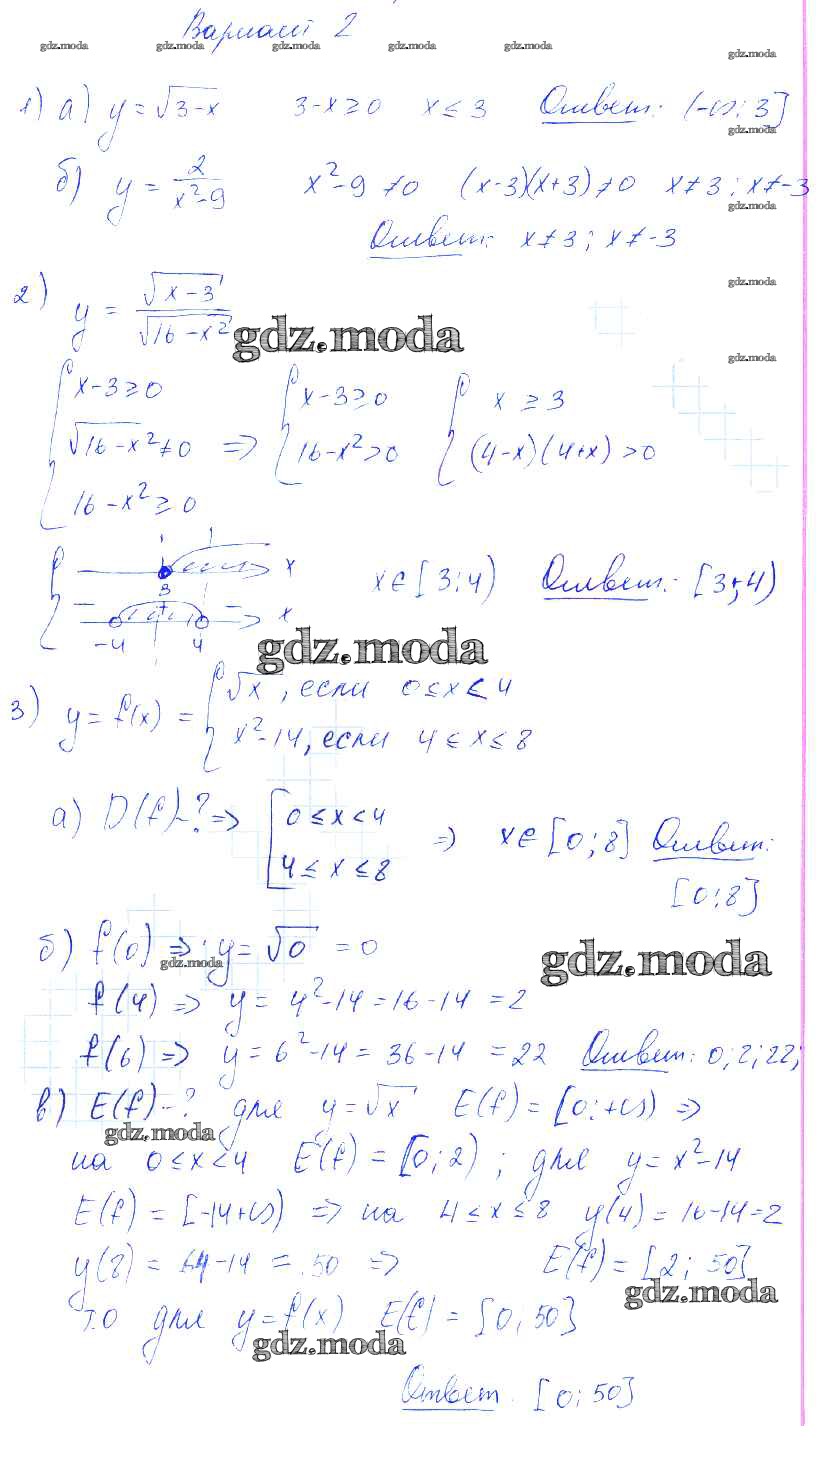 Вариант 2
gdz.moda gdz.moda gdz.moda gdz.moda gdz.moda gdz.moda
1) а) y = √3-x 3-x ≥ 0 x ≤ 3 Ответ: (-∞; 3]
gdz.moda
б) y = 2/x²-9 x²-9 ≠ 0 (x-3)(x+3) ≠ 0 x ≠ 3; x ≠ -3
gdz.moda
Ответ: x ≠ 3; x ≠ -3
gdz.moda
2) y = √x-3/√16-x²
gdz.moda
gdz.moda
{ x-3 ≥ 0 { x-3 ≥ 0 { x ≥ 3
√16-x² ≠ 0 => 16-x² > 0 (4-x)(4+x) > 0
16-x² ≥ 0
x
3 x ∈ [3; 4) Ответ: [3; 4)
- + - x
-4 4
gdz.moda
3) y = f(x) = { √x, если 0 ≤ x < 4
x²-14, если 4 ≤ x ≤ 8
а) D(f)-? => [ 0 ≤ x < 4
4 ≤ x ≤ 8 => x ∈ [0; 8] Ответ:
[0; 8]
б) f(0) => y = √0 = 0
gdz.moda gdz.moda
f(4) => y = 4²-14 = 16-14 = 2
f(6) => y = 6²-14 = 36-14 = 22 Ответ: 0; 2; 22;
в) E(f)-? для y = √x E(f) = [0; +∞) =>
gdz.moda
на 0 ≤ x < 4 E(f) = [0; 2); для y = x²-14
E(f) = [-14+∞) => на 4 ≤ x ≤ 8 y(4) = 16-14 = 2
y(8) = 64-14 = 50 => E(f) = [2; 50]
gdz.moda
т.о для y = f(x) E(f) = [0; 50]
gdz.moda
Ответ. [0; 50]